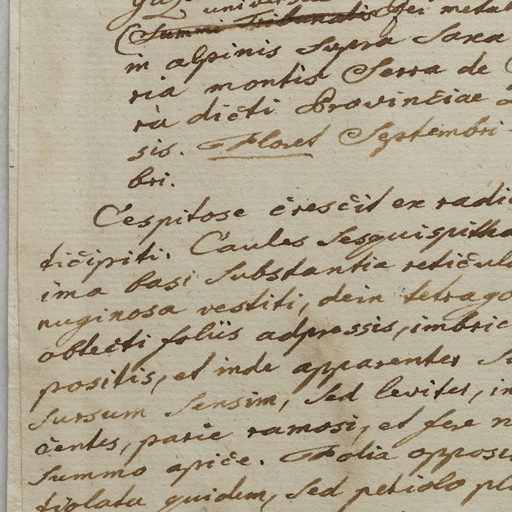 universa
(Summi Tribunatis Rei metal
in alpinis supra Saxa
ria montis Serra de
rà dicti Provinciae
sis. Floret Septembri
bri.
Cespitose crescit ex radic
ticipiti. Caules sesquispitha
ima basi substantia reticul
nuginosa vestiti, dein tetrago
obtecti foliis adpressis, imbric
positis, et inde apparenter
sursum sensim, sed leviter, in
centes, parce ramosi, et fere n
summo apice. Folia opposit
tiolata quidem, sed petiolo pl